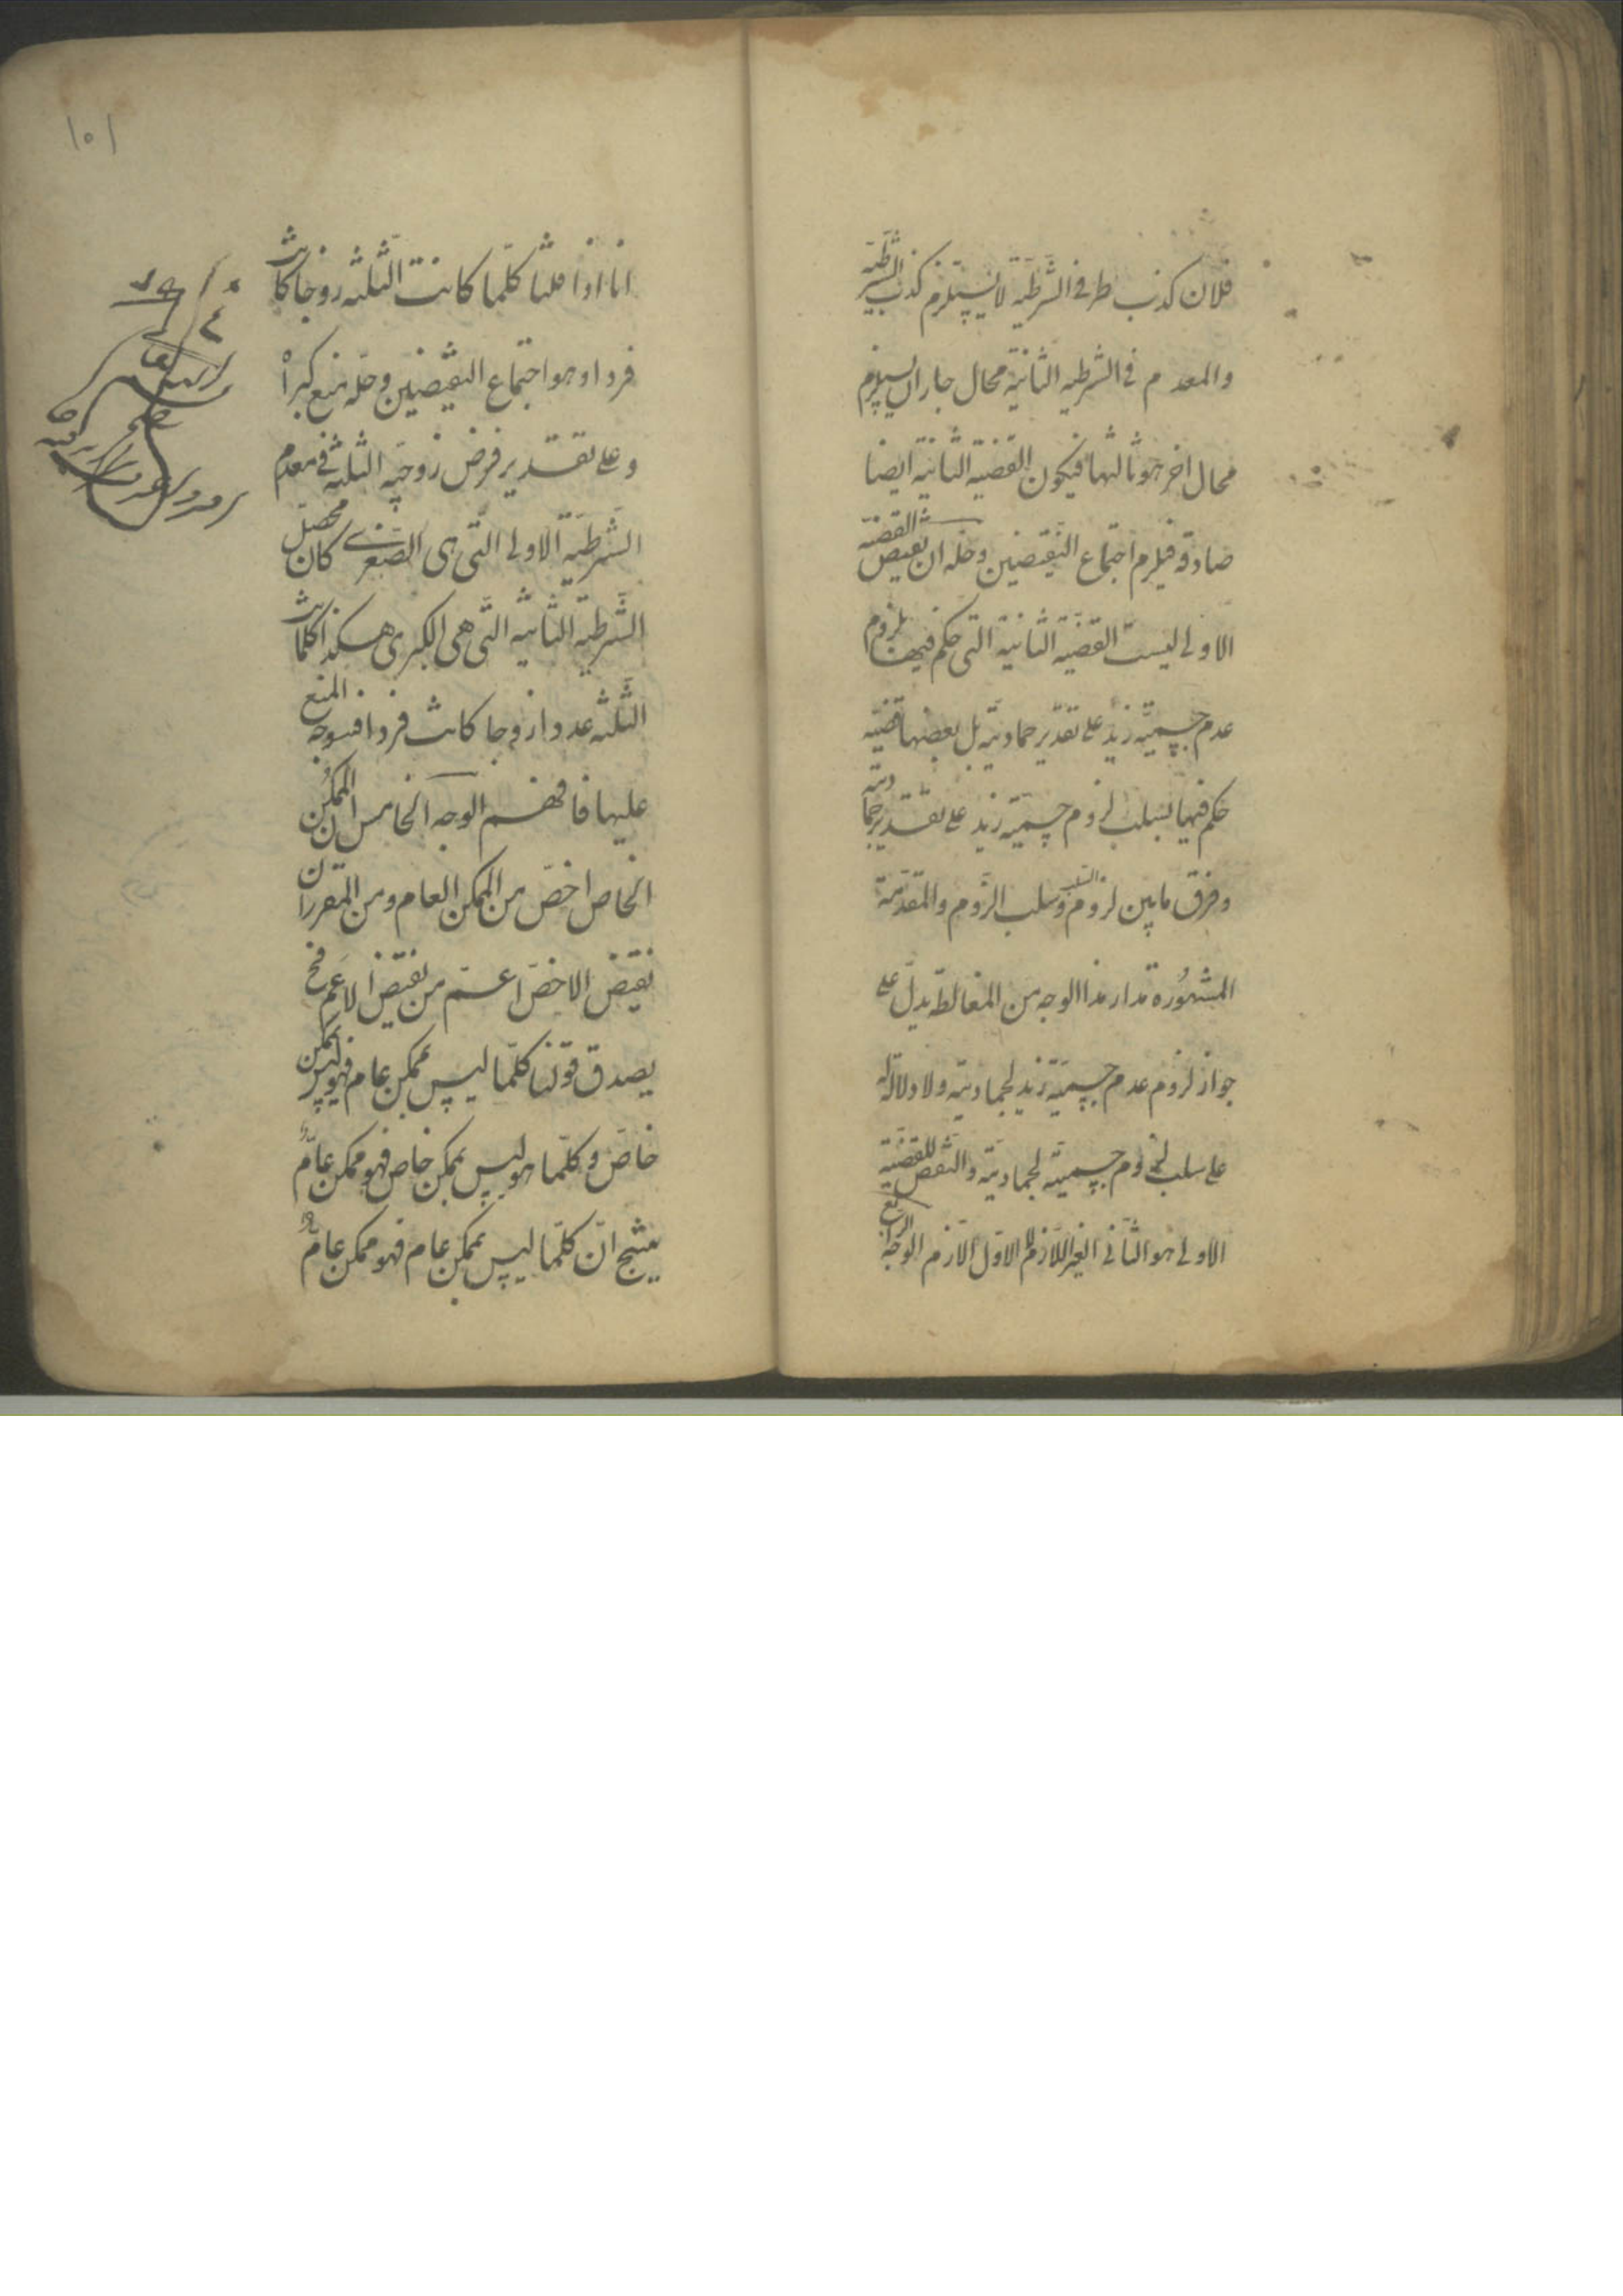 فلان كذب طرفي الشرطية لا يستلزم كذب الشرطية
والمقدم في الشرطية الثانية محال جاز ان يستلزم
محال اخر هو تاليها فيكون القضية الثانية ايضا
صادقة فيلزم اجتماع النقيضين وحله ان نقيض القضية
الاولى ليست القضية الثانية التي حكم فيها بلزوم
عدم جسمية زيد على تقدير جمادية بل نقيضها قضية
حكم فيها بسلب لزوم جسمية زيد على تقدير جمادية
وفرق ما بين لزوم السلب وسلب اللزوم والمقدمة
المشهورة مدار هذا الوجه من المغالطة يدل على
جواز لزوم عدم جسمية زيد لجمادية ولا دلالة له
على سلب لزوم جسمية لجمادية والنقيض للقضية
الاولى هو الثاني الغير اللازم لا الاول اللازم الوجه الرابع
انا اذا قلنا كلما كانت الثلثة زوجا كانت
فردا وهو اجتماع النقيضين وحله منع كبراه
وعلى تقدير فرض زوجية الثلثة في مقدم
الشرطية الاولى التي هي الصغرى كان محصل
الشرطية الثانية التي هي الكبرى هكذا كلما كانت
الثلثة عددا زوجا كانت فردا فتوجه المنع
عليها فافهم الوجه الخامس ان الممكن
الخاص اخص من الممكن العام ومن المقرر ان
نقيض الاخص اعم من نقيض الاعم فح
يصدق قولنا كلما ليس بممكن عام فهو ليس بممكن
خاص وكلما هو ليس بممكن خاص فهو ممكن عام
ينتج ان كلما ليس بممكن عام فهو ممكن عام